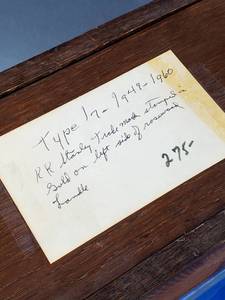 Type 17- 1948-1960
RR Stanley Trade mark stamped in
Gold on left side of rosewood
handle
275-